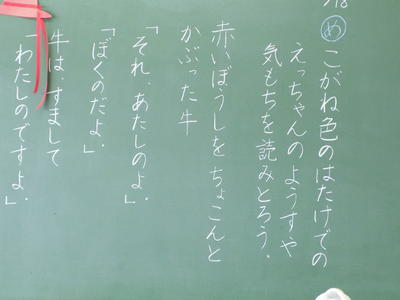 7/8
め こがね色のはたけでの
えっちゃんのようすや
気もちを読みとろう。
赤いぼうしをちょこんと
かぶった牛
「それ、あたしのよ。」
「ぼくのだよ。」
牛は、すまして
「わたしのですよ。」